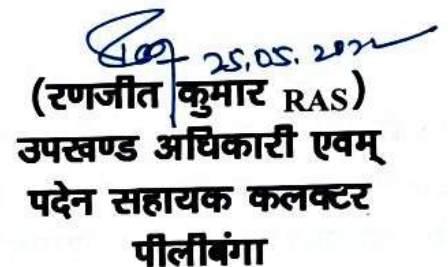 25.05.2022
(रणजीत कुमार RAS)
उपखण्ड अधिकारी एवम्
पदेन सहायक कलक्टर
पीलीबंगा